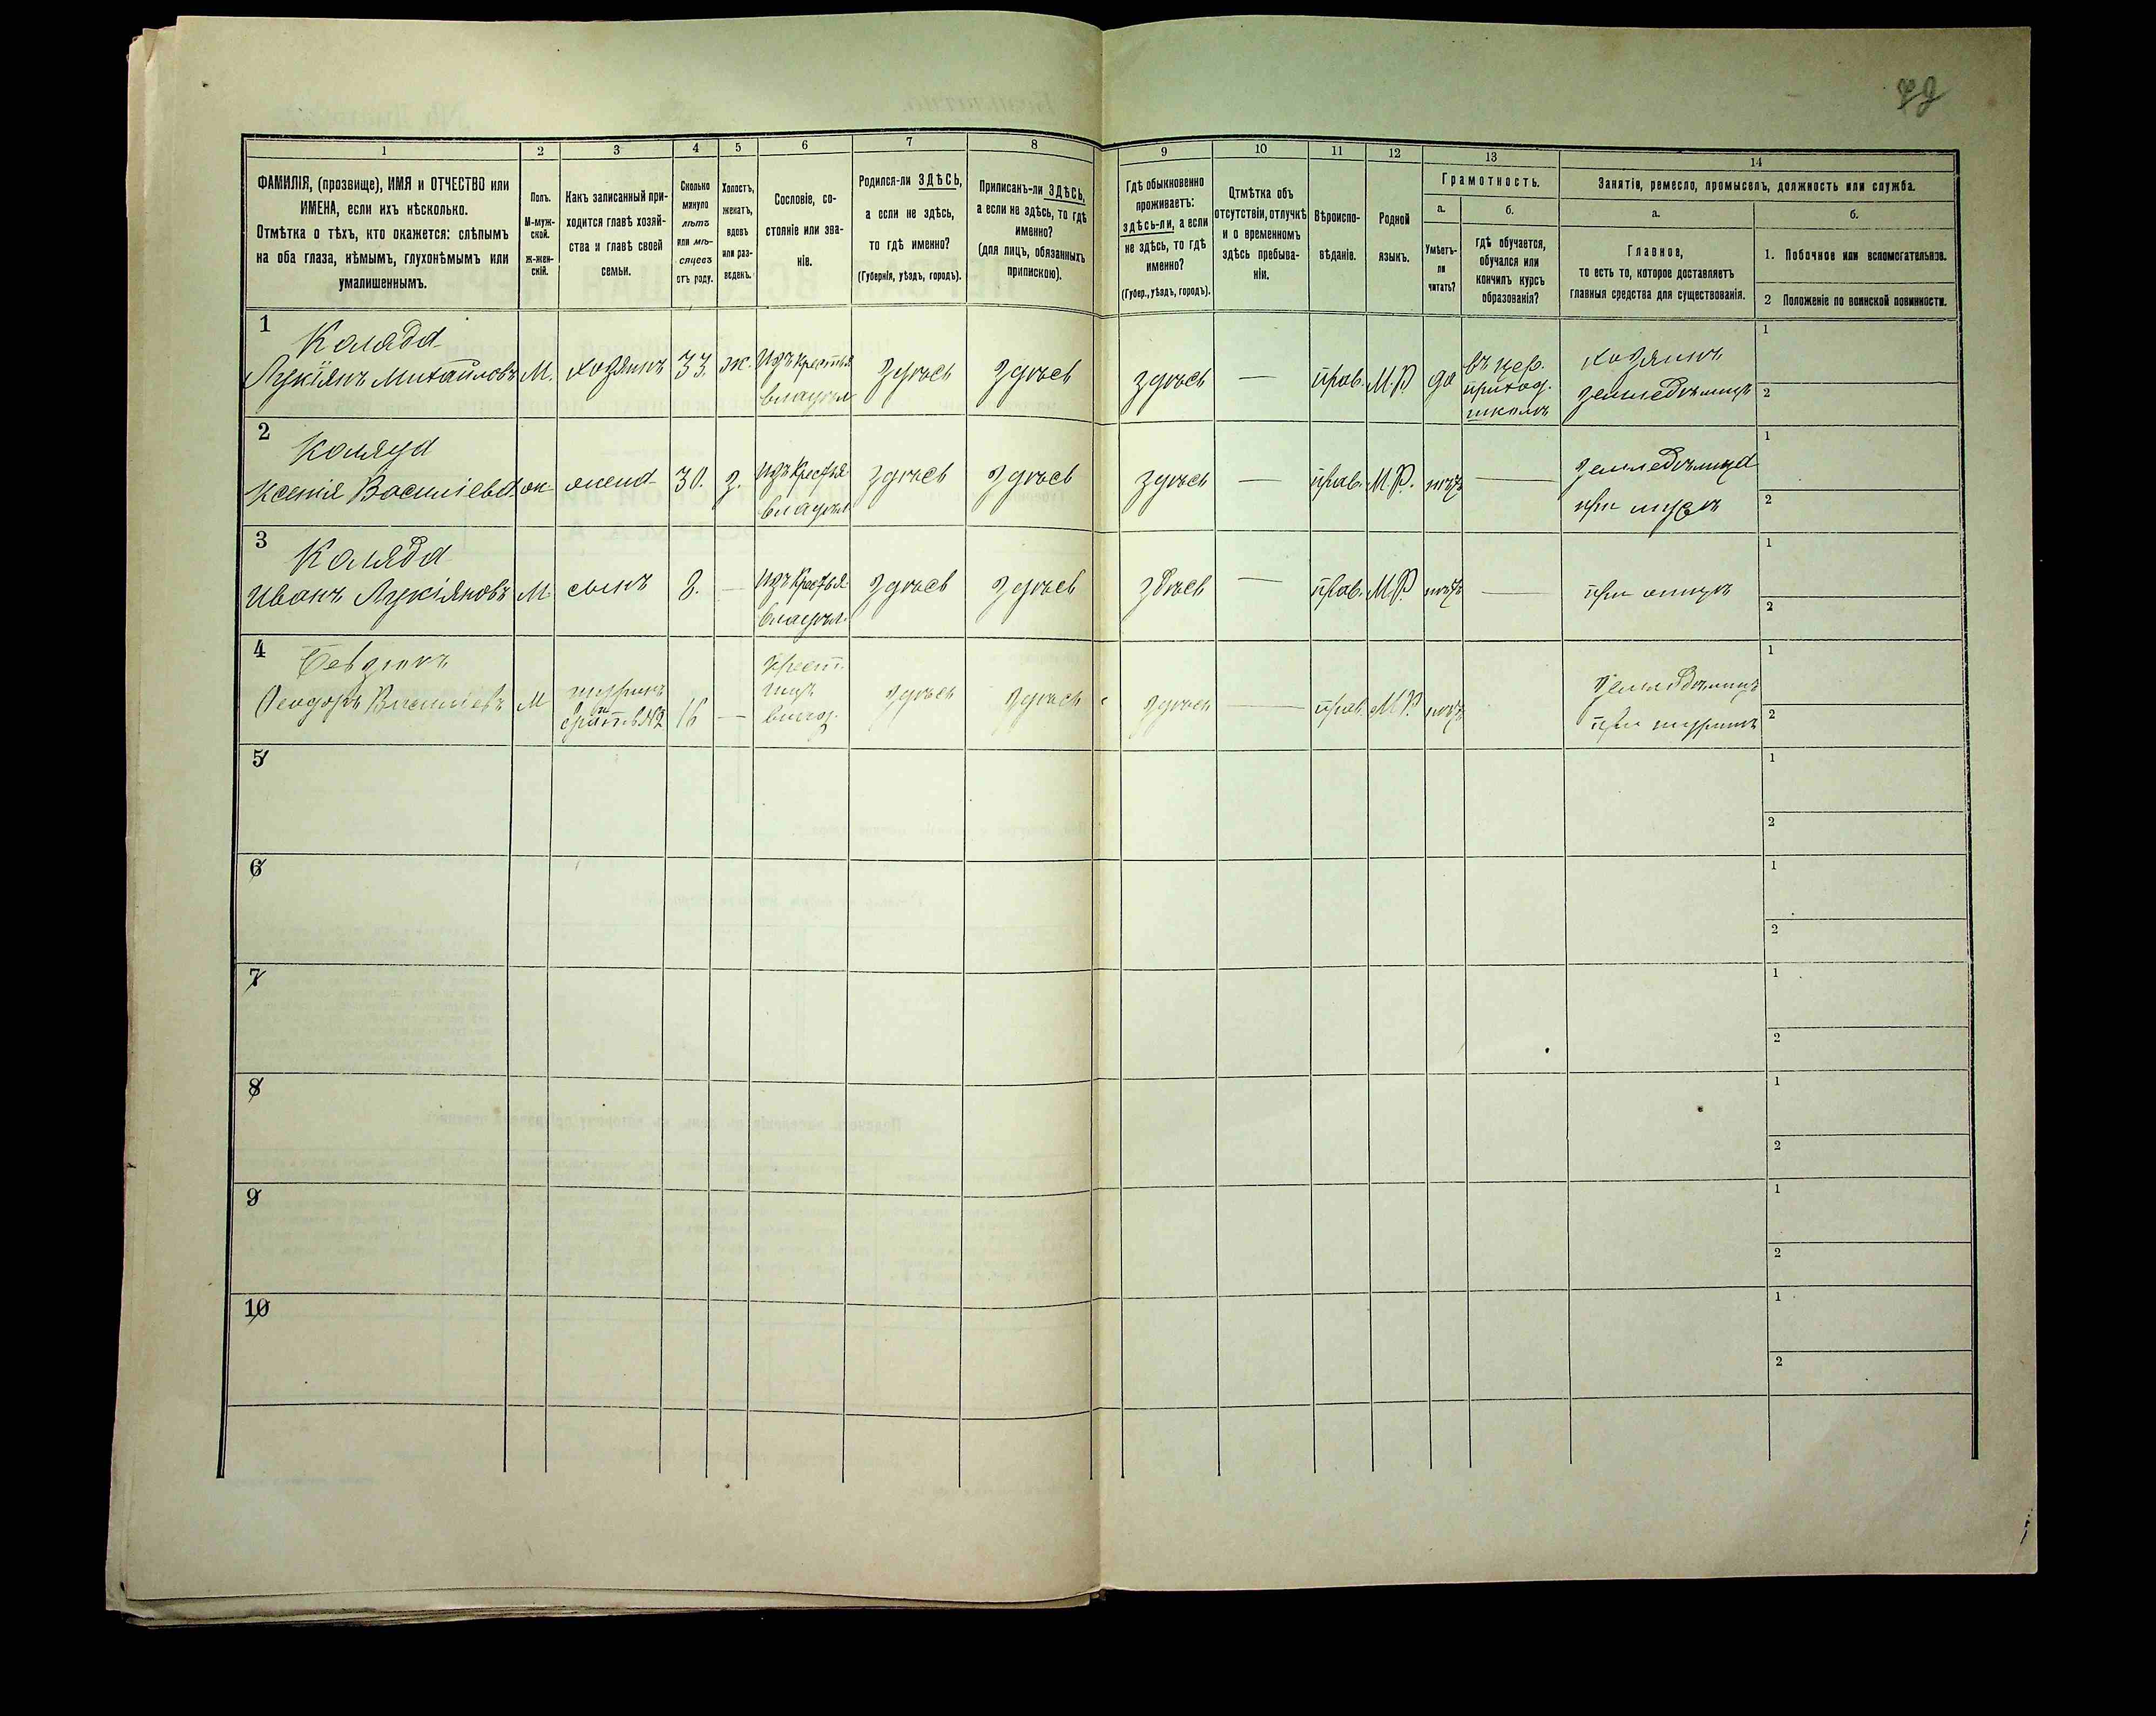 79
1
2
3
4
5
6
7
8
9
10
11
12
13
14
ФАМИЛІЯ, (прозвище), ИМЯ и ОТЧЕСТВО или
ИМЕНА, если ихъ нѣсколько.
Отмѣтка о тѣхъ, кто окажется: слѣпымъ
на оба глаза, нѣмымъ, глухонѣмымъ или
умалишеннымъ.
Полъ.
М-муж-
ской.
ж-жен-
скій.
Какъ записанный при-
ходится главѣ хозяй-
ства и главѣ своей
семьи.
Сколько
минуло
лѣтъ
или мѣ-
сяцевъ
отъ роду.
Холостъ,
женатъ,
вдовъ
или раз-
веденъ.
Сословіе, со-
стояніе или зва-
ніе.
Родился-ли ЗДѢСЬ,
а если не здѣсь,
то гдѣ именно?
(Губернія, уѣздъ, городъ).
Приписанъ-ли ЗДѢСЬ,
а если не здѣсь, то гдѣ
именно?
(для лицъ, обязанныхъ
припискою).
Гдѣ обыкновенно
проживаетъ:
здѣсь-ли, а если
не здѣсь, то гдѣ
именно?
(Губер., уѣздъ, городъ).
Отмѣтка объ
отсутствіи, отлучкѣ
и о временномъ
здѣсь пребыва-
ніи.
Вѣроиспо-
вѣданіе.
Родной
языкъ.
Грамотность.
а.
Умѣетъ-
ли
читать?
б.
гдѣ обучается,
обучался или
кончилъ курсъ
образованія?
Занятіе, ремесло, промыселъ, должность или служба.
а.
Главное,
то есть то, которое доставляетъ
главныя средства для существованія.
б.
1. Побочное или вспомогательное.
2 Положеніе по воинской повинности.
1
Коляда
Лукіянъ Михайловъ М. хозяинъ 33. ж. Изъ крестья
владѣл здѣсь здѣсь здѣсь — прав. М.Р. да въ цер.
приход.
школѣ
хозяинъ
земледѣлецъ
1
2
2
Коляда
Ксенія Васильева ж жена 30. з. Изъ Крестья
владѣл здѣсь здѣсь здѣсь — прав. М.Р. нѣтъ —
земледѣлица
при мужѣ
1
2
3
Коляда
Иванъ Лукіяновъ М сынъ 8. — Изъ Крестья
владѣл. здѣсь здѣсь здѣсь — прав. М.Р. нѣтъ — при отцѣ
1
2
4
Феодоръ Васильевъ М шуринъ
16 — Крест.
изъ
владѣ. здѣсь здѣсь здѣсь — прав. М.Р. нѣтъ
Земледѣлецъ
при шуринѣ
1
2
5
1
2
6
1
2
7
1
2
8
1
2
9
1
2
10
1
2